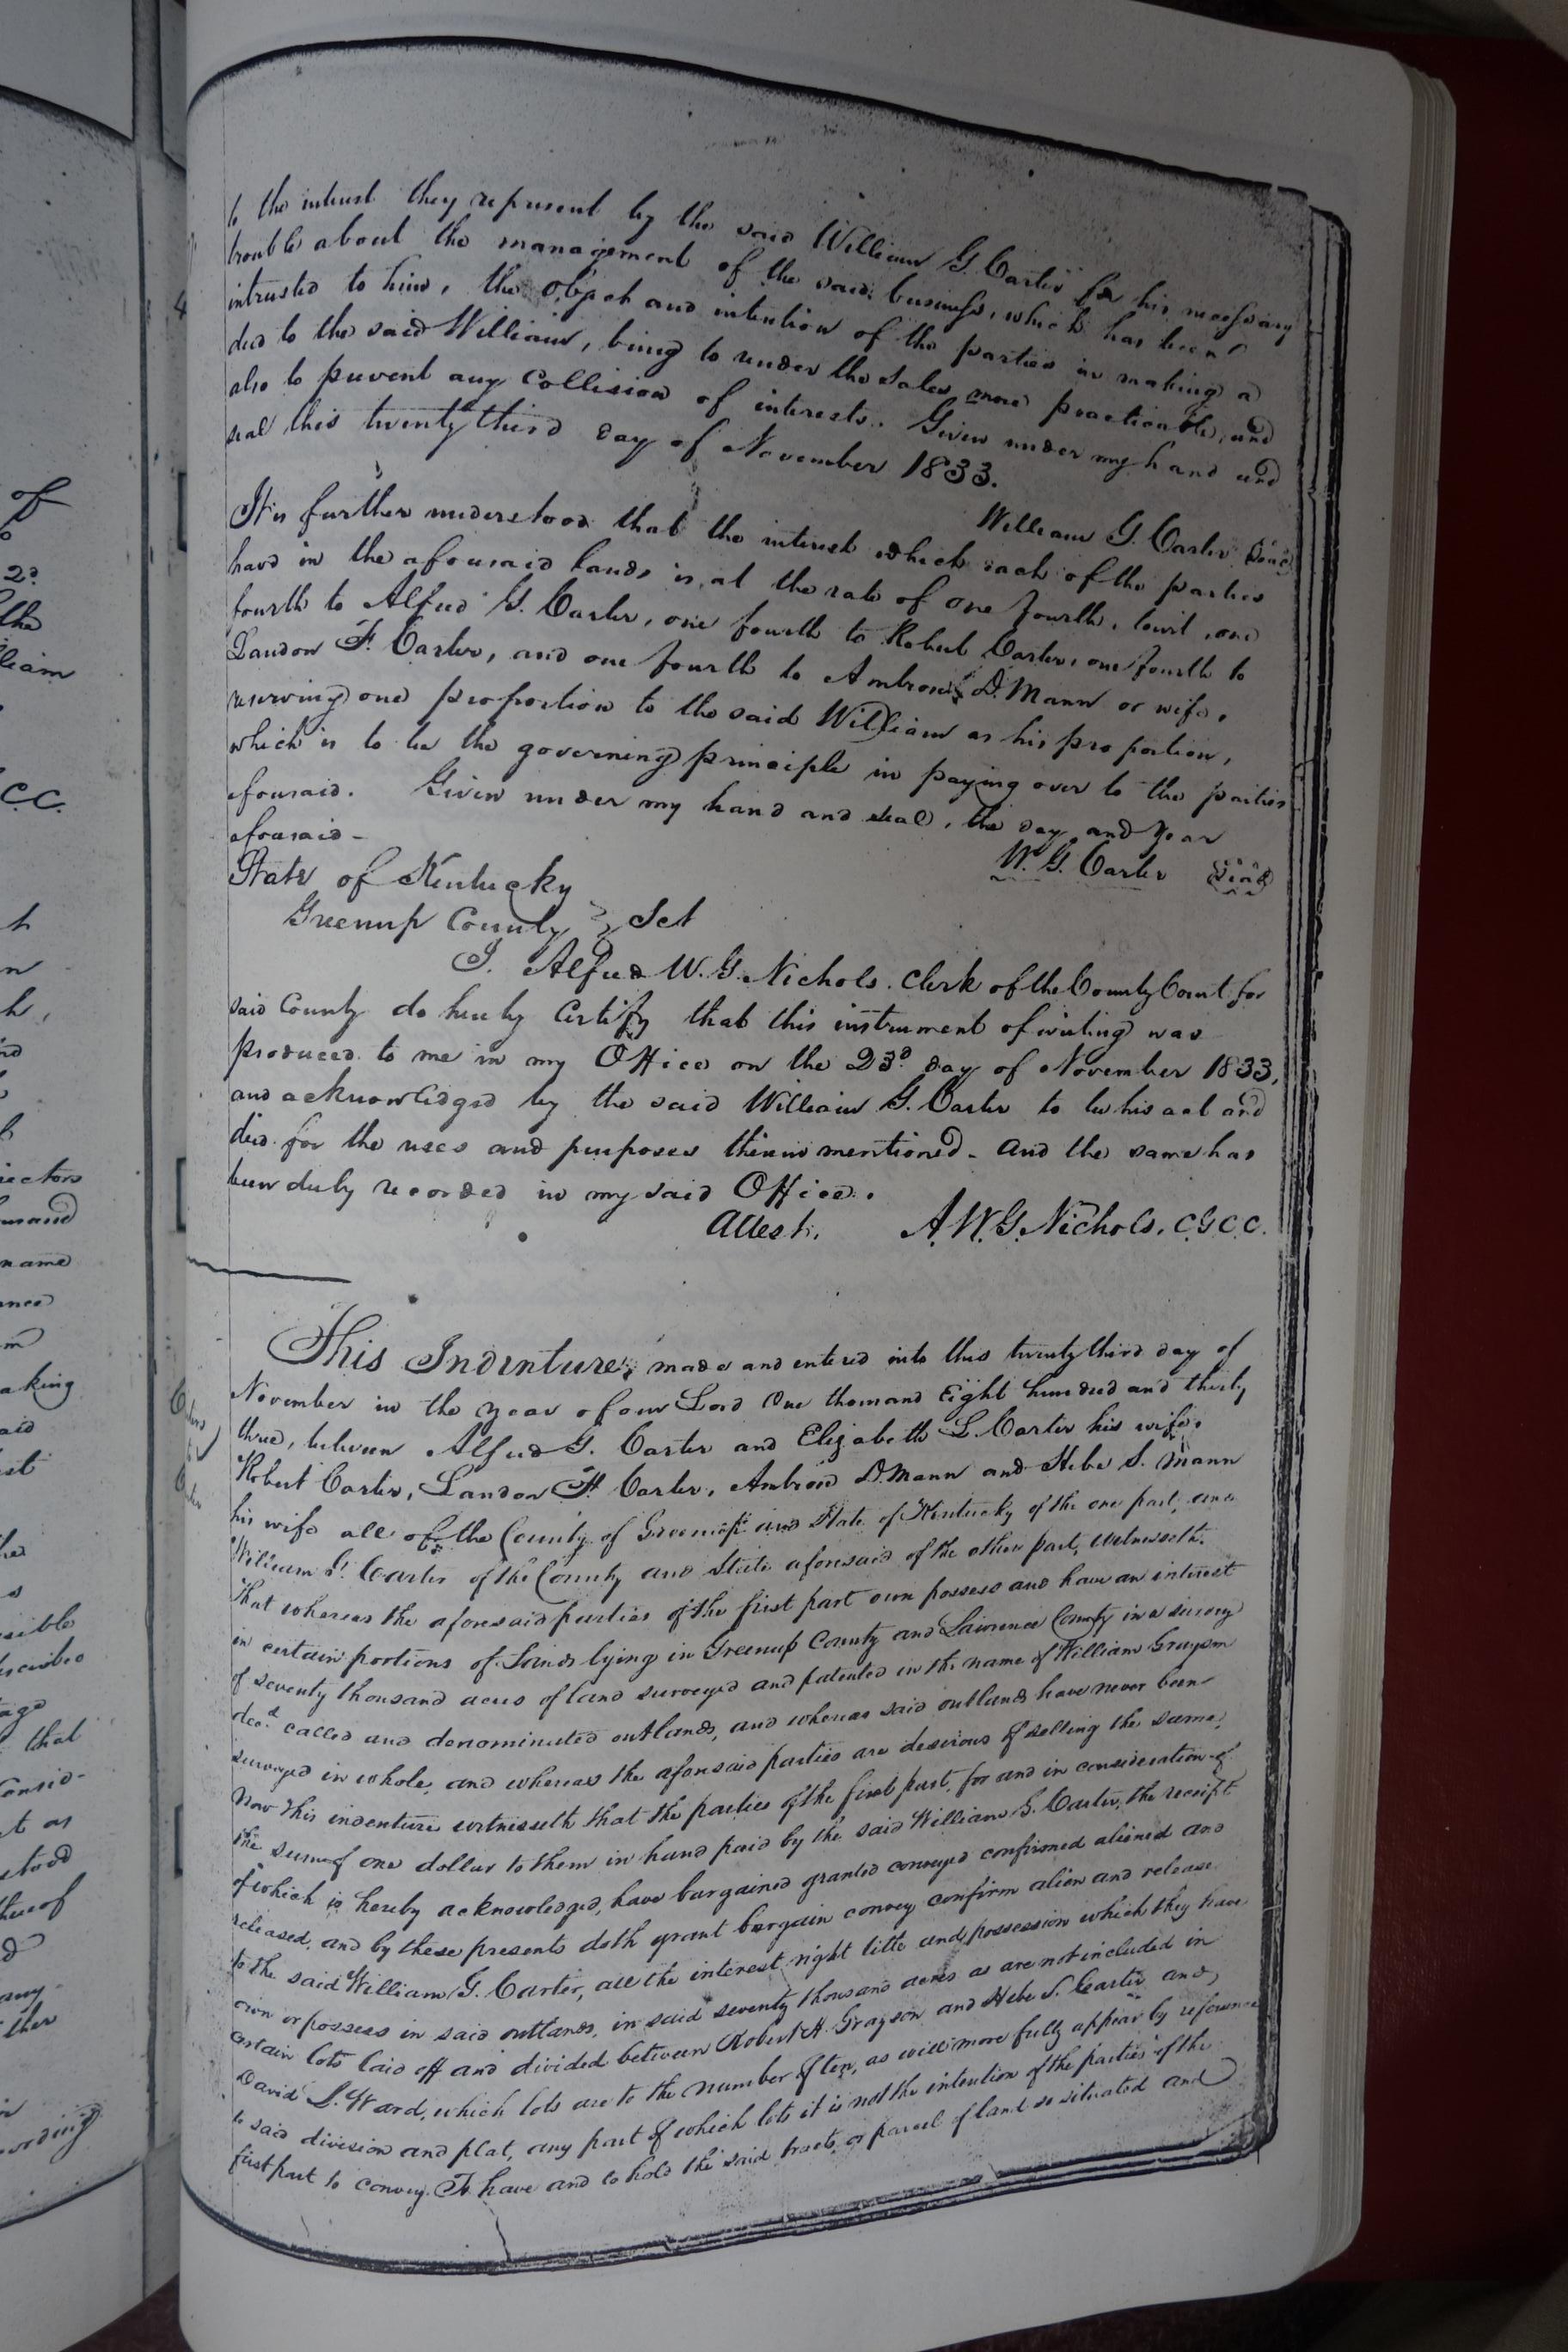 to the interest they represent by the said William G. Carter for his necessary
trouble about the management of the said business, which has been
intrusted to him, the object and intention of the parties in making a
deed to the said William, being to render the sales more practicable, and
also to prevent any collision of interests. Given under my hand and
seal this twenty third day of November 1833.
William G. Carter Seal
It is further understood that the interest which each of the parties
have in the aforesaid lands is at the rate of one fourth, towit, one
fourth to Alfred G. Carter, one fourth to Robert Carter, one fourth to
Landon F. Carter, and one fourth to Ambrose D. Mann or wife,
reserving one proportion to the said William as his proportion,
which is to be the governing principle in paying over to the parties
aforesaid. Given under my hand and seal, the day and year
aforesaid -
W. G. Carter Seal
State of Kentucky
Greenup County } Sct
I. Alfred W. G. Nichols. Clerk of the County Court for
said County do hereby Certify that this instrument of writing was
produced to me in my Office on the 23d. day of November 1833,
and acknowledged by the said William G. Carter to be his act and
deed for the uses and purposes therein mentioned - and the same has
been duly recorded in my said Office.
Attest. A. W. G. Nichols. C. G. C. C.
This Indenture, made and entered into this twenty third day of
November in the year of our Lord One thousand Eight hundred and thirty
three, between Alfred G. Carter and Elizabeth L. Carter his wife,
Robert Carter, Landon F. Carter, Ambrose D. Mann and Hebe S. Mann
his wife all of the County of Greenup and State of Kentucky of the one part, and
William G. Carter of the County and State aforesaid of the other part, witnesseth.
That whereas the aforesaid parties of the first part own possess and have an interest
in certain portions of Lands lying in Greenup County and Lawrence County in a survey
of seventy thousand acres of land surveyed and patented in the name of William Grayson
decd. called and denominated outlands, and whereas said outlands have never been
surveyed in whole, and whereas the aforesaid parties are desirous of selling the same,
Now this indenture witnesseth that the parties of the first part, for and in consideration of
the sum of one dollar to them in hand paid by the said William G. Carter, the receipt
of which is hereby acknowledged, have bargained granted conveyed confirmed aliened and
released, and by these presents doth grant bargain convey confirm alien and release
to the said William G. Carter, all the interest right title and possession which they have
own or possess in said outlands, in said seventy thousand acres as are not included in
certain lots laid off and divided between Robert H. Grayson and Hebe S. Carter and
David L. Ward, which lots are to the number of ten, as will more fully appear by reference
to said division and plat, any part of which lots it is not the intention of the parties of the
first part to convey. To have and to hold the said tract, or parcel of land so situated and